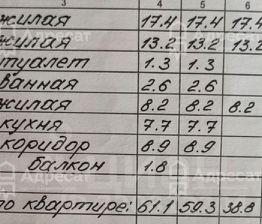 3 4 5 6
жилая 17.4 17.4 17.4
жилая 13.2 13.2 13.2
туалет 1.3 1.3
ванная 2.6 2.6
жилая 8.2 8.2 8.2
кухня 7.7 7.7
коридор 8.9 8.9
балкон 1.8
по квартире: 61.1 59.3 38.8
Адресат
Адресат